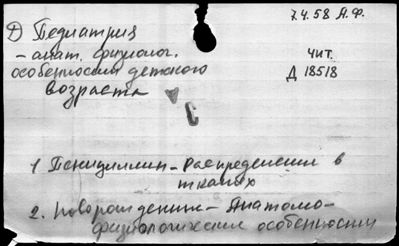 7.4.58 А.Ф.
Д Педиатрия
– анат. физиолог.
особенности детского
возраста
чит.
Д 18518
С
1. Пенициллин – Распределение в
тканях
2. Новорожденные – Анатомо-
физиологические особенности